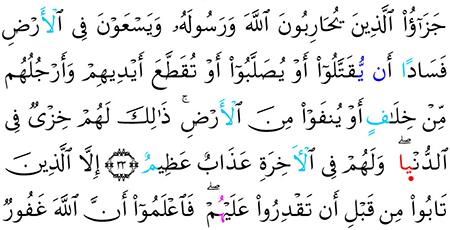 جَزَٰٓؤُا۟ ٱلَّذِينَ يُحَارِبُونَ ٱللَّهَ وَرَسُولَهُۥ وَيَسْعَوْنَ فِى ٱلْأَرْضِ
فَسَادًا أَن يُقَتَّلُوٓا۟ أَوْ يُصَلَّبُوٓا۟ أَوْ تُقَطَّعَ أَيْدِيهِمْ وَأَرْجُلُهُم
مِّنْ خِلَٰفٍ أَوْ يُنفَوْا۟ مِنَ ٱلْأَرْضِ ۚ ذَٰلِكَ لَهُمْ خِزْىٌ فِى
ٱلدُّنْيَا ۖ وَلَهُمْ فِى ٱلْأَخِرَةِ عَذَابٌ عَظِيمٌ ﴿٣٣﴾ إِلَّا ٱلَّذِينَ
تَابُوا۟ مِن قَبْلِ أَن تَقْدِرُوا۟ عَلَيْهُمْ ۖ فَٱعْلَمُوٓا۟ أَنَّ ٱللَّهَ غَفُورٌ